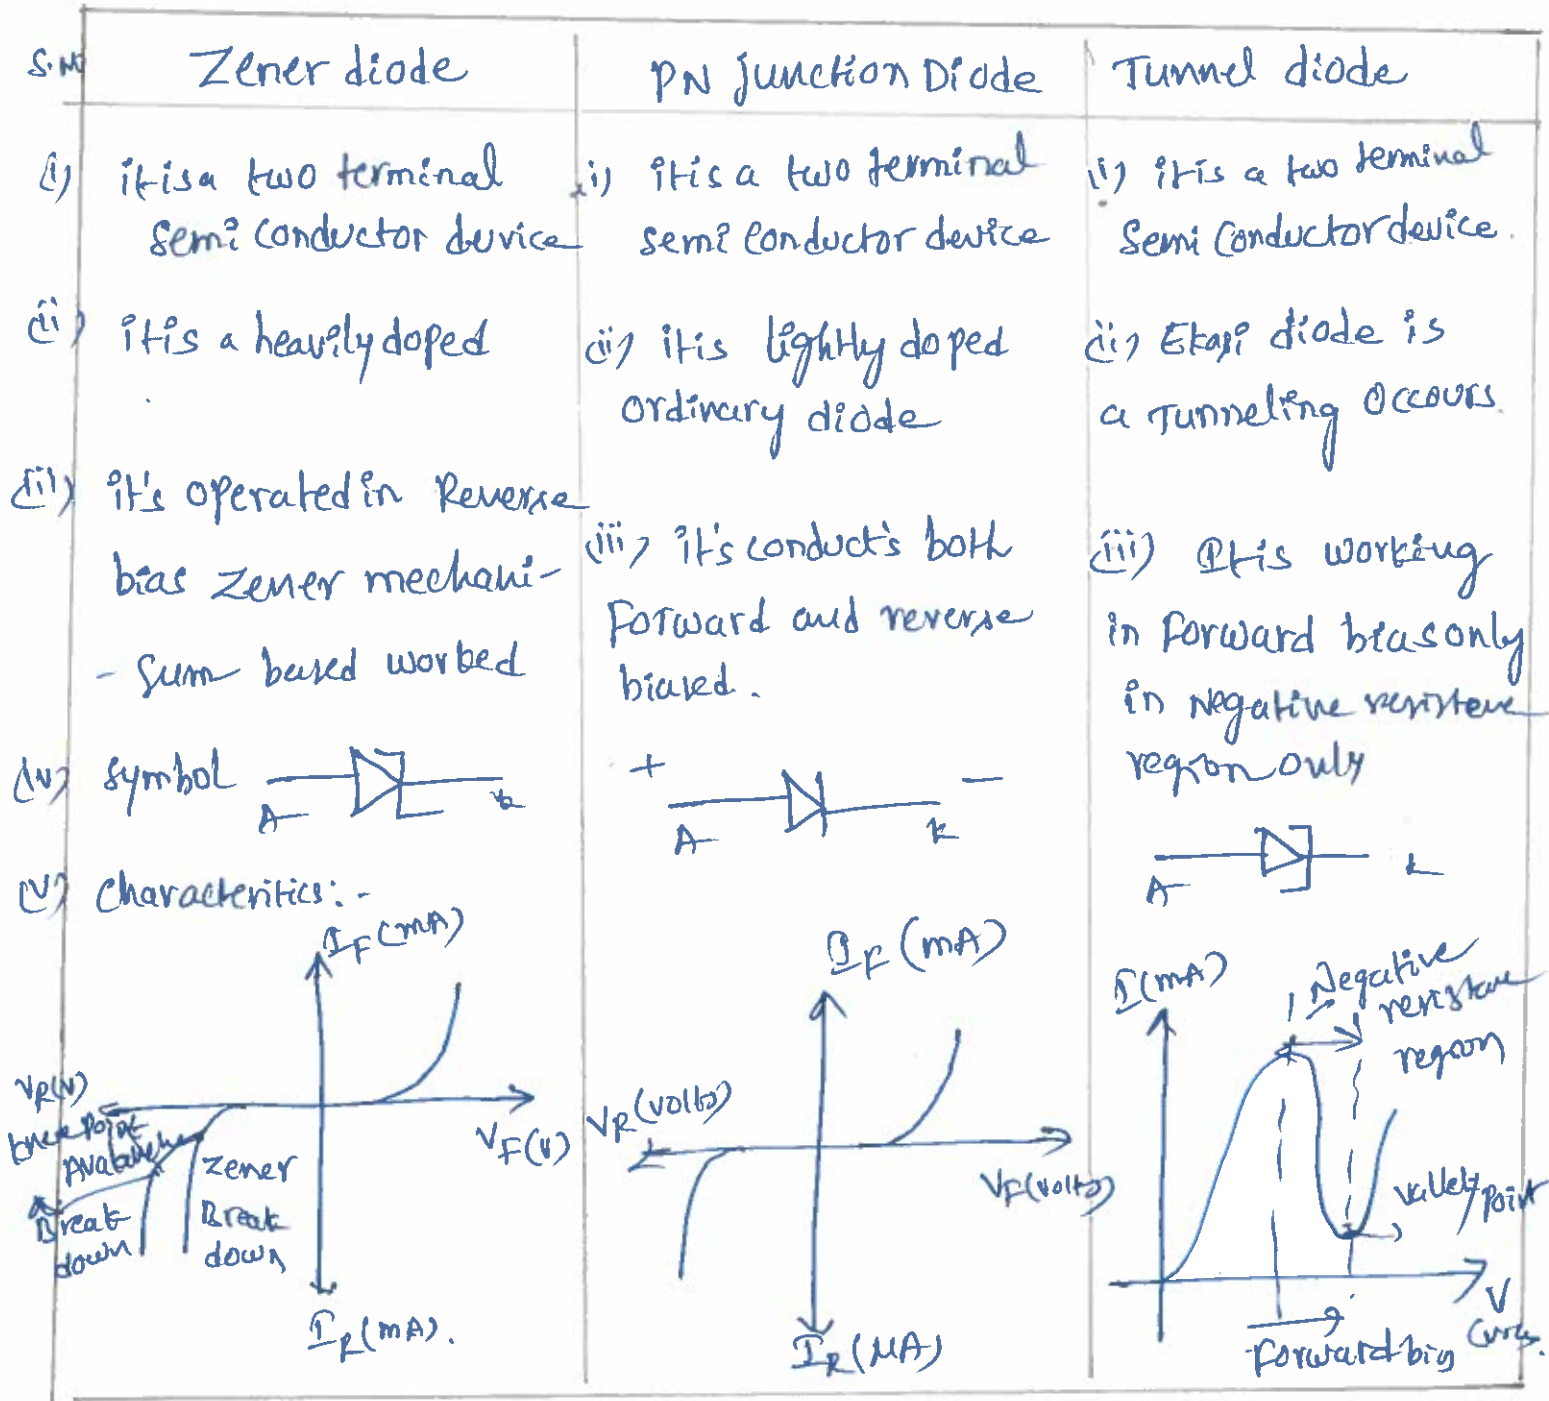 S.No
Zener diode
PN junction Diode
Tunnel diode
(i) it is a two terminal
semi conductorduvice
(i) it is a two terminal
semi conductor device
(i) it is a two terminal
Semi Conductor device.
(ii) it is a heavily doped
(ii) it is lightly doped
ordinary diode
(ii) Ekapi diode is
a Tunneling Occours.
(iii) it's operated in Reverse
bias Zener mechani-
- sum based worked
(iii) it's conduct's both
Forward and reverse
biased.
(iii) It is working
in forward bias only
in Negative resistere
region only
(iv) symbol
A
k
+
-
A
k
A
k
(v) Characteritics:-
IF (mA)
VR(V)
VF(V)
knee point
Avalanche
Break
down
Zener
Break
down
IR(mA).
IF (mA)
VR(volts)
VF(volts)
IR(μA)
I(mA)
Negative
resistane
region
valley point
V
(volts).
Forward bias